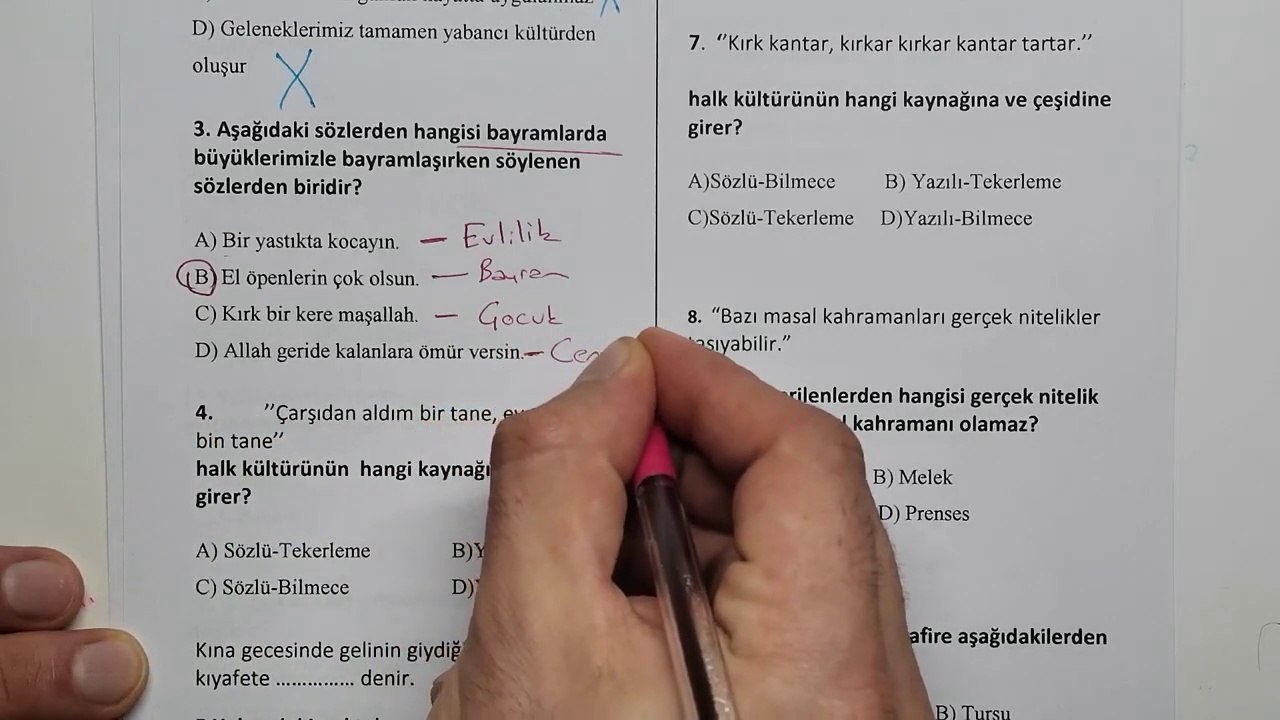 D) Geleneklerimiz tamamen yabancı kültürden
oluşur
3. Aşağıdaki sözlerden hangisi bayramlarda
büyüklerimizle bayramlaşırken söylenen
sözlerden biridir?
A) Bir yastıkta kocayın. – Evlilik
B) El öpenlerin çok olsun. – Bayram
C) Kırk bir kere maşallah. – Çocuk
D) Allah geride kalanlara ömür versin. – Cen
4. ’’Çarşıdan aldım bir tane,
bin tane’’
halk kültürünün hangi kaynağı
girer?
A) Sözlü-Tekerleme B)Y
C) Sözlü-Bilmece D)
Kına gecesinde gelinin giydiğ
kıyafete ............... denir.
7. ‘’Kırk kantar, kırkar kırkar kantar tartar.’’
halk kültürünün hangi kaynağına ve çeşidine
girer?
A)Sözlü-Bilmece B) Yazılı-Tekerleme
C)Sözlü-Tekerleme D)Yazılı-Bilmece
8. “Bazı masal kahramanları gerçek nitelikler
taşıyabilir.”
rilenlerden hangisi gerçek nitelik
kahramanı olamaz?
B) Melek
D) Prenses
afire aşağıdakilerden
B) Turşu